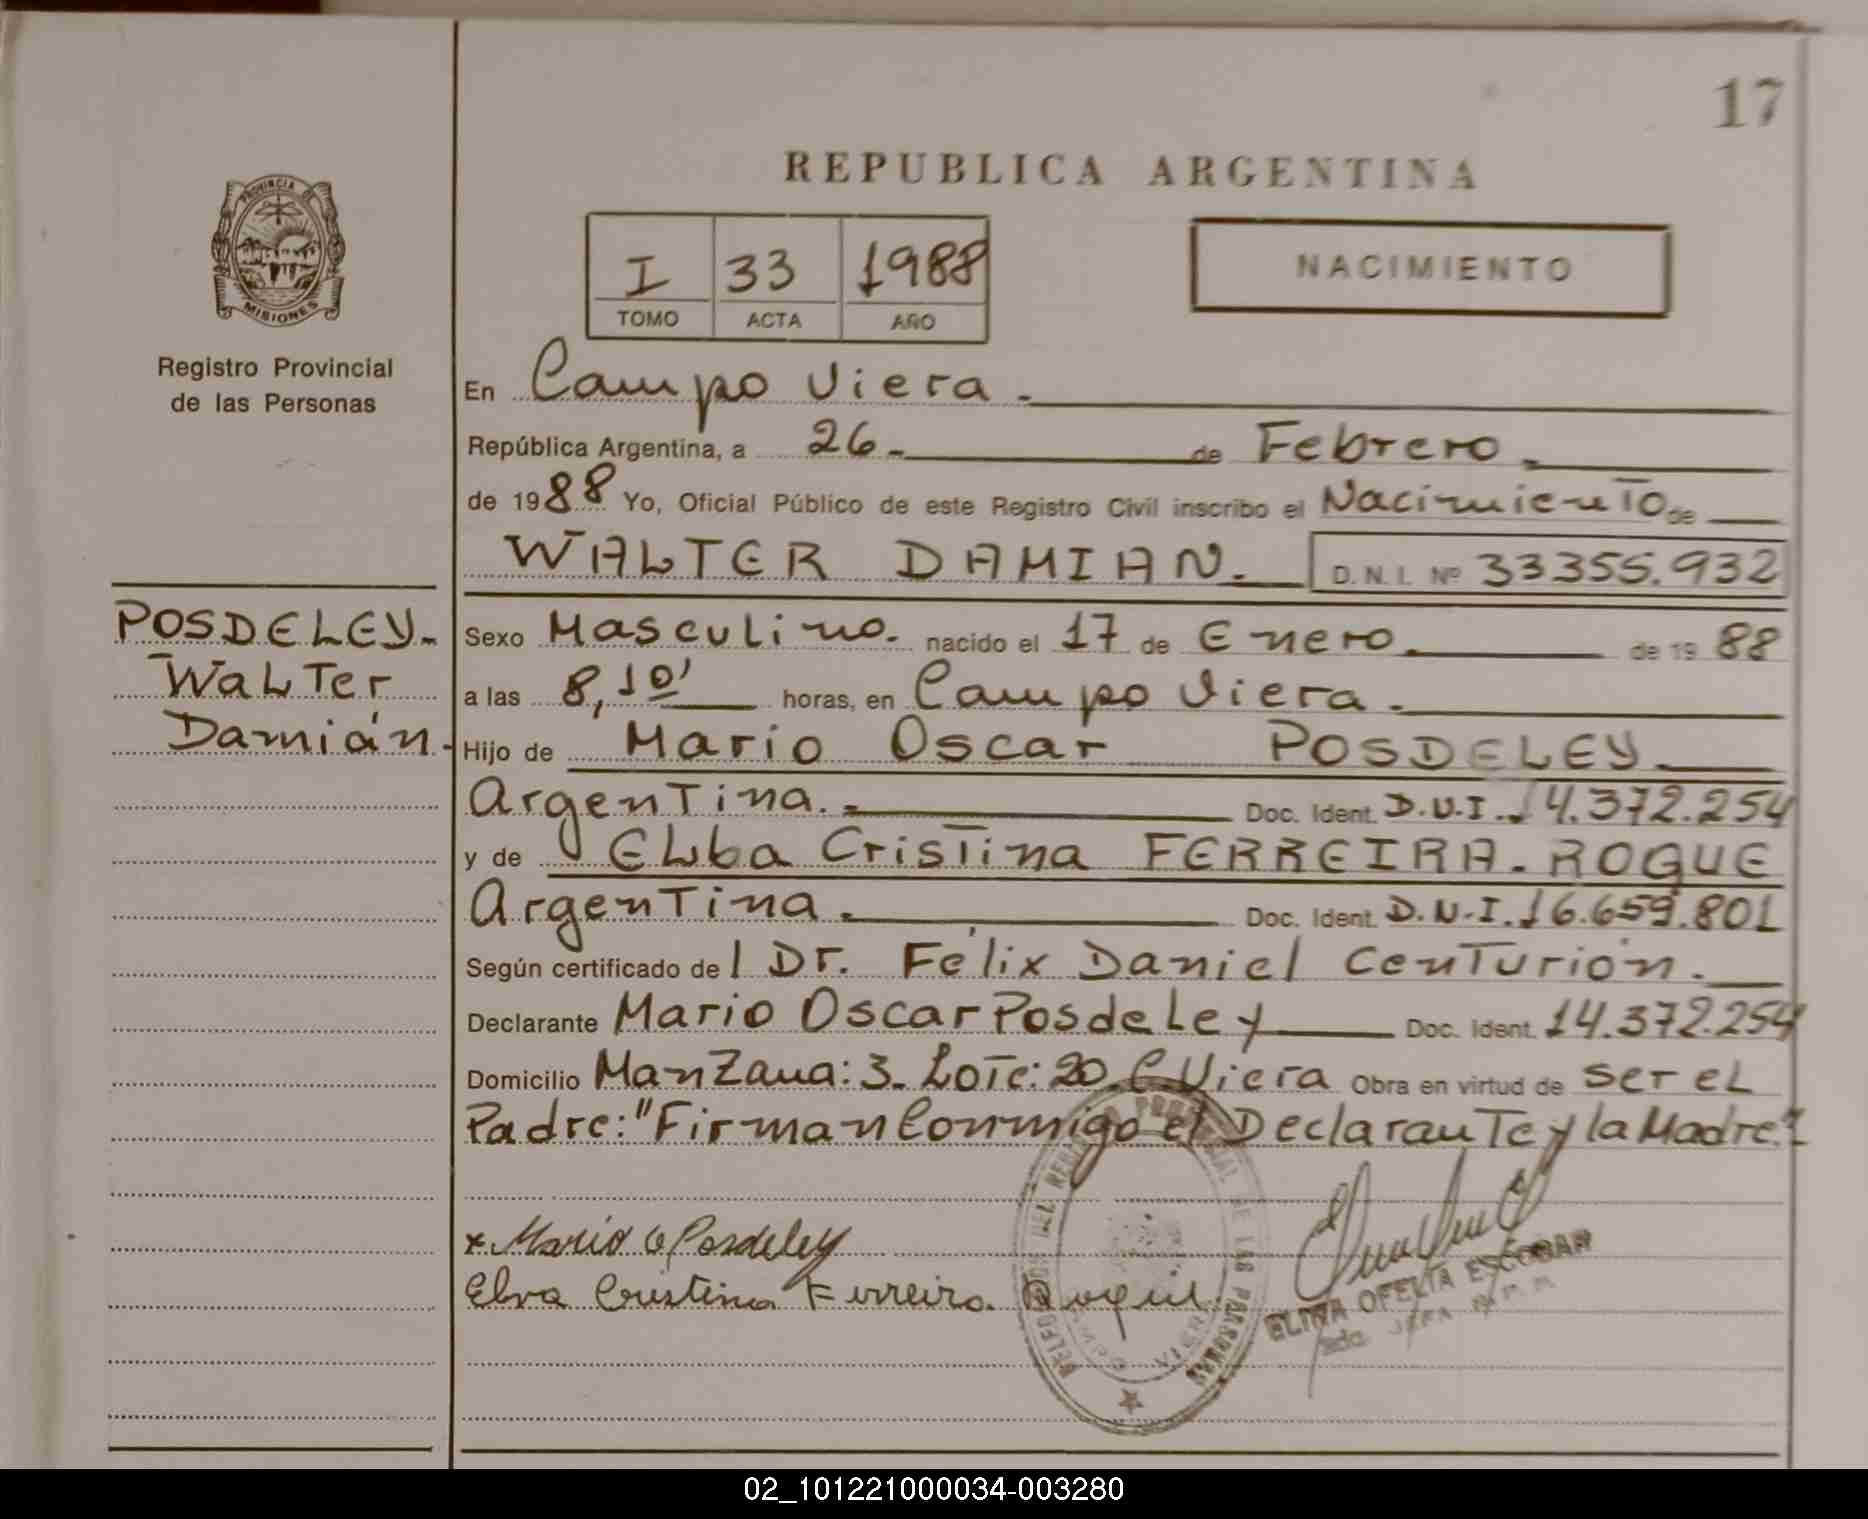 17
REPUBLICA ARGENTINA
PROVINCIA DE
MISIONES
Registro Provincial
de las Personas
I 33 1988
TOMO ACTA AÑO
NACIMIENTO
En Campo Viera.
República Argentina, a 26 de Febrero
de 1988 Yo, Oficial Público de este Registro Civil inscribo el Nacimiento de
WALTER DAMIAN. D.N.I. Nº 33355.932
POSDELEY.
Walter
Damián.
Sexo Masculino. nacido el 17 de Enero. de 1988
a las 8,10' horas, en Campo Viera.
Hijo de Mario Oscar POSDELEY.
Argentina. Doc. Ident. D.N.I. 14.372.254
y de Elba Cristina FERREIRA. ROQUE
Argentina. Doc. Ident. D.N.I. 16.659.801
Según certificado de l Dr. Félix Daniel Centurión.
Declarante Mario Oscar Posdeley Doc. Ident. 14.372.254
Domicilio Manzana: 3. Lote: 20. C. Viera Obra en virtud de ser el
Padre: "Firman Conmigo el Declarante y la Madre."
x Mario O Posdeley
Elva Cristina Ferreira.
DEL REGISTRO PROVINCIAL DE LAS PERSONAS
CAMPO VIERA
OFELIA ESCOBAR
JEFA
02_101221000034-003280